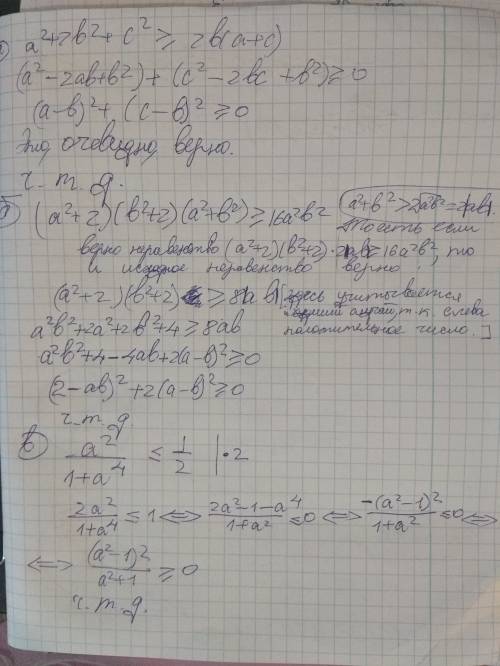 a² + 2b² + c² ≥ 2b(a+c)
(a² - 2ab + b²) + (c² - 2bc + b²) ≥ 0
(a-b)² + (c-b)² ≥ 0
Это очевидно верно.
ч. т. д.
б) (a²+2)(b²+2)(a²+b²) ≥ 16a²b² (a²+b² ≥ 2√a²b² = 2|ab|.
То есть если
верно неравенство (a²+2)(b²+2)·2|ab| ≥ 16a²b², то
и исходное неравенство верно
(a²+2)(b²+2) ≥ 8|ab| [здесь учитывается
т.к. слева
положительное число.]
a²b² + 2a² + 2b² + 4 ≥ 8ab
a²b² + 4 - 4ab + 2(a-b)² ≥ 0
(2-ab)² + 2(a-b)² ≥ 0
ч. т. д.
в) a²/(1+a⁴) ≤ 1/2 |·2
2a²/(1+a⁴) ≤ 1 ⟺ (2a²-1-a⁴)/(1+a²) ≤ 0 ⟺ -(a²-1)²/(1+a²) ≤ 0 ⟺
⟺ (a²-1)²/(a²+1) ≥ 0
ч. т. д.